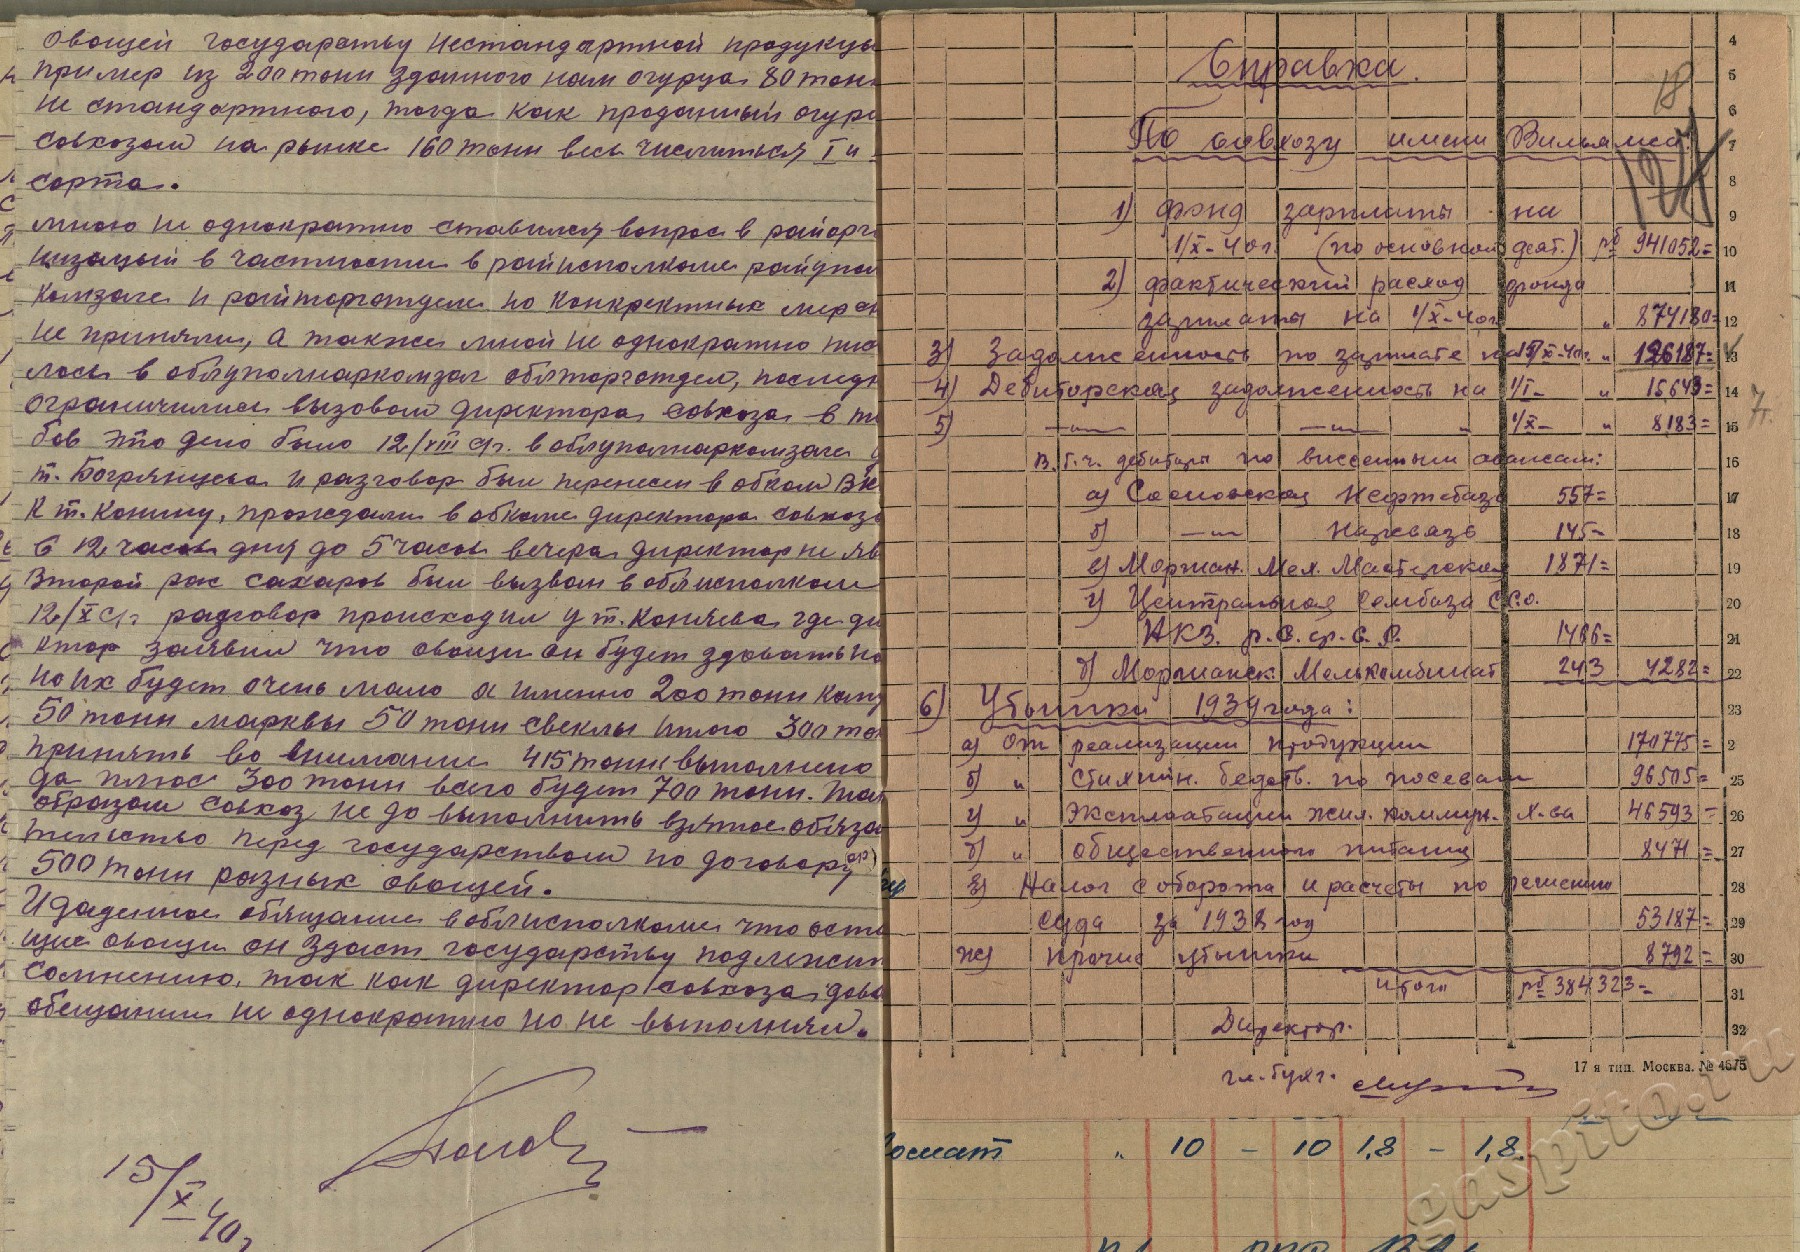 овощей государству нестандартной продукцы
пример из 200 тонн зданного нам огурца 80 тонн
не стандартного, тогда как проданный огур
совхозом на рынке 160 тонн весь числиться I и
сорта.
мною не однократно ставился вопрос в райорга
низацый в частности в райисполкоме райупол
комзаге и райторготделе но конкректных мер он
не приняли, а также мной не однократно пис
лось в облуполнаркомзаг облторготдел, последн
ограничились вызовом директора совхоза в т
бов это дело было 12/VIII с/г. в облуполнаркомзаге
т. Богрянцева и разговор был перенесен в обком ВК
к т. Конину, прождали в обкоме директора совхоза
с 12 часов дня до 5 часов вечера директор не яв
Второй раз Сахаров был вызван в облисполком
12/X с/г. разговор происходил у т. Коняева где ди
ктор заявил что овощи он будет здовать но
но их будет очень мало а именно 200 тонн капу
50 тонн марквы 50 тонн свеклы итого 300 то
принять во внимание 415 тонн выполнено
да плюс 300 тонн всего будет 700 тонн. Так
образом совхоз не до выполнить взятое обяза
тельство перед государством по договору
500 тонн разных овощей.
И даденное обящание в облисполкоме что оста
щие овощи он здаст государству подлежит
сомнению, так как директор совхоза дова
обещании не однократно но не выполнял.
15/X-40г
Справка.
18
По совхозу имени Вильямса.
121
1) фонд зарплаты на
1/X-40г. (по основной деят.) рб 941052=
2) фактический расход фонда
зарплаты на 1/X-40г " 874180=
3) Задолженность по зарплате на 15/X-40г. " 126187=
4) Дебиторская задолженность на 1/I- " 15643=
5) —"— —"— " 1/X- " 8183=
В.т.ч. дебиторы по внесенным авансам:
а) Сосновская Нефтебаза 557=
б) —"— Нарсвязь 145-
в) Моршан. Мех. Мастерская 1871=
г) Центральная Сембаза С.С.О.
НКЗ. р.С.ф.С.Р. 1466=
д) Моршанск. Мелькомбинат 243 4282=
6) Убытки 1939 года:
а) От реализации продукции 170775=
б) " стихийн. бедств. по посевам 96505=
г) " эксплоатации жил. коммун. х-ва 46593=
д) " общественного питания 8471=
з) Налог с оборота и расчеты по решению
суда за 1938 год 53187=
ж) Прочие убытки 8792=
Итого рб 384323=
Директор.
гл. бухг.
4
5
6
7
8
9
10
11
12
13
14
15
16
17
18
19
20
21
22
23
2
25
26
27
28
29
30
31
32
17 я тип. Москва. № 4675
"  10 - 10 1,8 - 1,8.
gaspito.ru